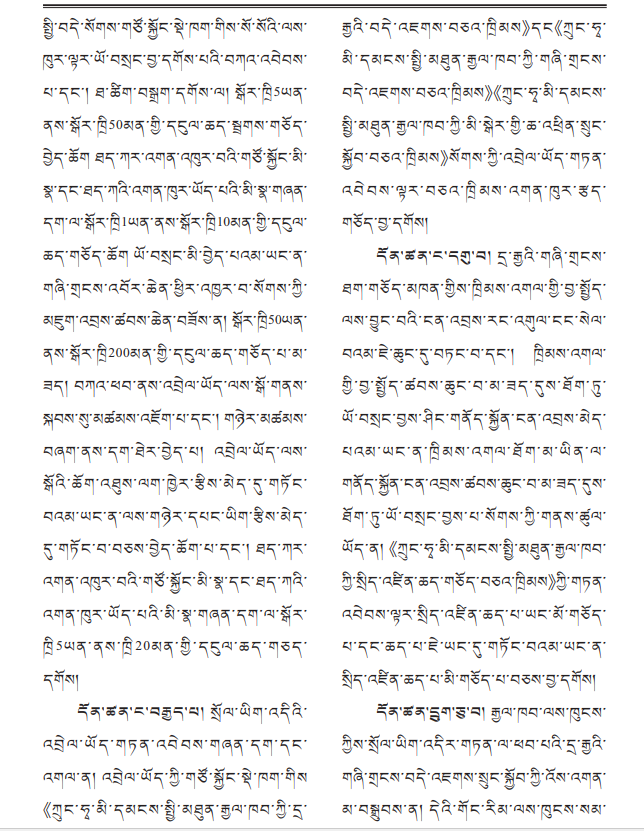 སྤྱི་བདེ་སོགས་གཙོ་སྐྱོང་སྡེ་ཁག་གིས་སོ་སོའི་ལས་
ཁུར་ལྟར་ཡོ་བསྲང་བྱ་དགོས་པའི་བཀའ་འབེབས་
པ་དང་། ཐ་ཚིག་བསྒྲག་དགོས་ལ། སྒོར་ཁྲི5ཡན་
ནས་སྒོར་ཁྲི50མན་གྱི་དངུལ་ཆད་སྦྲགས་གཅོད་
བྱེད་ཆོག ཐད་ཀར་འགན་འཁུར་བའི་གཙོ་སྐྱོང་མི་
སྣ་དང་ཐད་ཀའི་འགན་ཁུར་ཡོད་པའི་མི་སྣ་གཞན་
དག་ལ་སྒོར་ཁྲི1ཡན་ནས་སྒོར་ཁྲི10མན་གྱི་དངུལ་
ཆད་གཅོད་ཆོག ཡོ་བསྲང་མི་བྱེད་པའམ་ཡང་ན་
གཞི་གྲངས་འབོར་ཆེན་ཕྱིར་འཁྱར་བ་སོགས་ཀྱི་
མཇུག་འབྲས་ཚབས་ཆེན་བཟོས་ན། སྒོར་ཁྲི50ཡན་
ནས་སྒོར་ཁྲི200མན་གྱི་དངུལ་ཆད་གཅོད་པ་མ་
ཟད། བཀའ་ཕབ་ནས་འབྲེལ་ཡོད་ལས་སྒོ་གནས་
སྐབས་སུ་མཚམས་འཇོག་པ་དང་། གཉེར་མཚམས་
བཞག་ནས་དག་ཐེར་བྱེད་པ། འབྲེལ་ཡོད་ལས་
སྒོའི་ཆོག་འཐུས་ལག་ཁྱེར་རྩིས་མེད་དུ་གཏོང་
བའམ་ཡང་ན་ལས་གཉེར་དཔང་ཡིག་རྩིས་མེད་
དུ་གཏོང་བ་བཅས་བྱེད་ཆོག་པ་དང་། ཐད་ཀར་
འགན་འཁུར་བའི་གཙོ་སྐྱོང་མི་སྣ་དང་ཐད་ཀའི་
འགན་ཁུར་ཡོད་པའི་མི་སྣ་གཞན་དག་ལ་སྒོར་
ཁྲི5ཡན་ནས་ཁྲི20མན་གྱི་དངུལ་ཆད་གཅད་
དགོས།
དོན་ཚན་ང་བརྒྱད་པ། སྲོལ་ཡིག་འདིའི་
འབྲེལ་ཡོད་གཏན་འབེབས་གཞན་དག་དང་
འགལ་ན། འབྲེལ་ཡོད་ཀྱི་གཙོ་སྐྱོང་སྡེ་ཁག་གིས
《ཀྲུང་ཧྭ་མི་དམངས་སྤྱི་མཐུན་རྒྱལ་ཁབ་ཀྱི་དྲ་
རྒྱའི་བདེ་འཇགས་བཅའ་ཁྲིམས》དང《ཀྲུང་ཧྭ་
མི་དམངས་སྤྱི་མཐུན་རྒྱལ་ཁབ་ཀྱི་གཞི་གྲངས་
བདེ་འཇགས་བཅའ་ཁྲིམས》《ཀྲུང་ཧྭ་མི་དམངས་
སྤྱི་མཐུན་རྒྱལ་ཁབ་ཀྱི་མི་སྒེར་གྱི་ཆ་འཕྲིན་སྲུང་
སྐྱོབ་བཅའ་ཁྲིམས》སོགས་ཀྱི་འབྲེལ་ཡོད་གཏན་
འབེབས་ལྟར་བཅའ་ཁྲིམས་འགན་ཁུར་རྩད་
གཅོད་བྱ་དགོས།
དོན་ཚན་ང་དགུ་བ། དྲ་རྒྱའི་གཞི་གྲངས་
ཐག་གཅོད་མཁན་གྱིས་ཁྲིམས་འགལ་གྱི་བྱ་སྤྱོད་
ལས་བྱུང་བའི་ངན་འབྲས་རང་འགུལ་ངང་སེལ་
བའམ་ཇེ་ཆུང་དུ་བཏང་བ་དང་། ཁྲིམས་འགལ་
གྱི་བྱ་སྤྱོད་ཚབས་ཆུང་བ་མ་ཟད་དུས་ཐོག་ཏུ་
ཡོ་བསྲང་བྱས་ཤིང་གནོད་སྐྱོན་ངན་འབྲས་མེད་
པའམ་ཡང་ན་ཁྲིམས་འགལ་ཐོག་མ་ཡིན་ལ་
གནོད་སྐྱོན་ངན་འབྲས་ཚབས་ཆུང་བ་མ་ཟད་དུས་
ཐོག་ཏུ་ཡོ་བསྲང་བྱས་པ་སོགས་ཀྱི་གནས་ཚུལ་
ཡོད་ན།《ཀྲུང་ཧྭ་མི་དམངས་སྤྱི་མཐུན་རྒྱལ་ཁབ་
ཀྱི་སྲིད་འཛིན་ཆད་གཅོད་བཅའ་ཁྲིམས》ཀྱི་གཏན་
འབེབས་ལྟར་སྲིད་འཛིན་ཆད་པ་ཡང་མོ་གཅོད་
པ་དང་ཆད་པ་ཇེ་ཡང་དུ་གཏོང་བའམ་ཡང་ན་
སྲིད་འཛིན་ཆད་པ་མི་གཅོད་པ་བཅས་བྱ་དགོས།
དོན་ཚན་དྲུག་ཅུ་བ། རྒྱལ་ཁབ་ལས་ཁུངས་
ཀྱིས་སྲོལ་ཡིག་འདིར་གཏན་ལ་ཕབ་པའི་དྲ་རྒྱའི་
གཞི་གྲངས་བདེ་འཇགས་སྲུང་སྐྱོབ་ཀྱི་འོས་འགན་
མ་བསྒྲུབས་ན། དེའི་གོང་རིམ་ལས་ཁུངས་སམ་